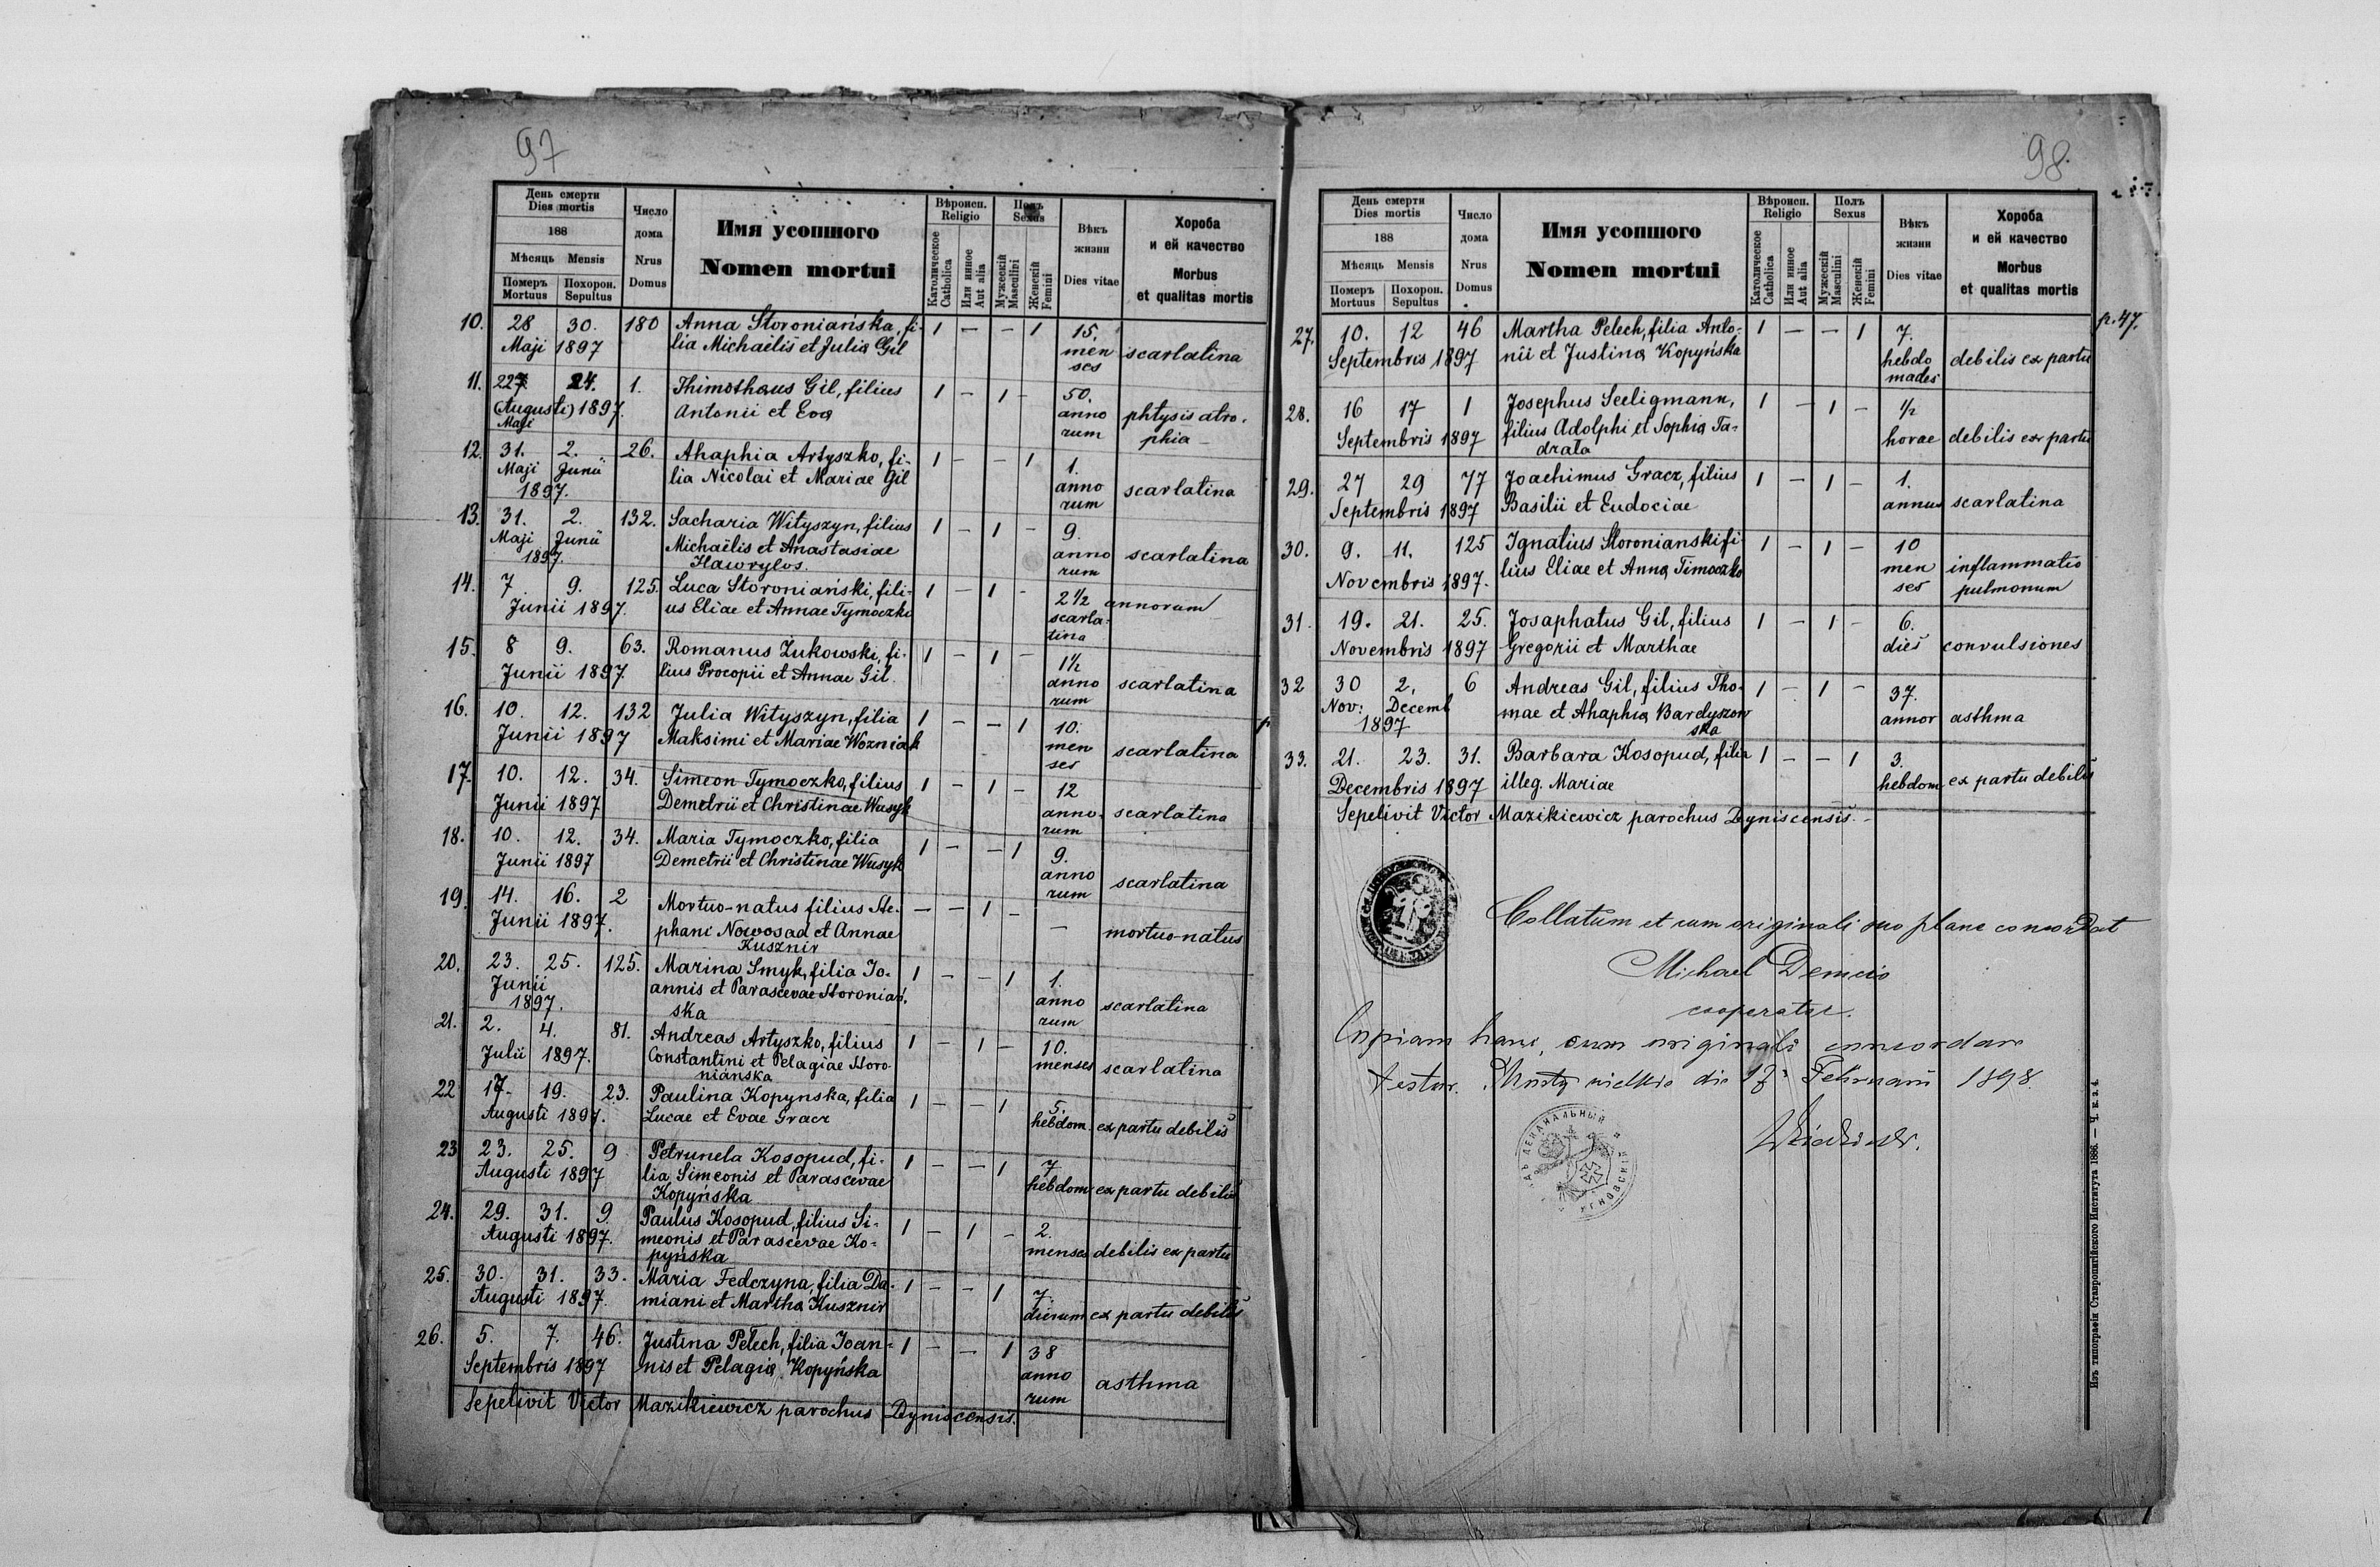 97
День смерти
Dies mortis
188
Мѣсяць Mensis
Померъ Похорон.
Mortuus Sepultus
Число
дома
Nrus
Domus
Имя усопшого
Nomen mortui
Вѣроисп.
Religio
Католическое
Catholica
Или инное
Aut alia
Полъ
Sexus
Мужескій
Masculini
Женскій
Femini
Вѣкъ
жизни
Dies vitae
Хороба
и ей качество
Morbus
et qualitas mortis
10. 28 30. 180 Anna Storoniańska, fi- 1 — — 1 15.
Maji 1897 lia Michaëlis et Julia Gil men scarlatina
ses
11. 24. 1. Thimothaus Gil, filius 1 — 1 — 50.
(Augusti) 1897. Antonii et Eva anno phtysis atro-
Maji rum phia —
12. 31. 2. 26. Ahaphia Artyszko, fi- 1 — — 1 1.
Maji Junii lia Nicolai et Mariae Gil anno scarlatina
1897. rum
13. 31. 2. 132. Sacharia Wityszyn, filius 1 — 1 — 9.
Maji Junii Michaëlis et Anastasiae anno scarlatina
1897. Hawrylos. rum
14. 7. 9. 125. Luca Storoniański, fili- 1 — 1 - 2½ annorum
Junii 1897. us Eliae et Annae Tymoczko scarla-
tina
15. 8 9. 63. Romanus Żukowski, fi- 1 — 1 — 1½
Junii 1897. lius Procopii et Annae Gil. anno scarlatina
rum
16. 10. 12. 132 Julia Wityszyn, filia 1 — — 1 10.
Junii 1897 Maksimi et Mariae Wozniak men scarlatina
ses
17. 10. 12. 34. Simeon Tymoczko, filius 1 — 1 — 12
Junii 1897 Demetrii et Christinae Wusyk anno- scarlatina
rum
18. 10. 12. 34. Maria Tymoczko, filia 1 — — 1 9.
Junii 1897 Demetrii et Christinae Wusyk anno scarlatina
rum
19. 14. 16. 2 Mortuo-natus filius Ste- — — 1 — —
Junii 1897. phani Nowosad et Annae mortuo-natus
Kusznir
20. 23. 25. 125. Marina Smyk, filia Jo- 1 — — 1 1.
Junii annis et Parascevae Storoniań- anno scarlatina
1897. ska rum
21. 2. 4. 81. Andreas Artyszko, filius 1 — 1 — 10.
Julii 1897. Constantini et Pelagiae Storo- menses scarlatina
nianska
22 17. 19. 23. Paulina Kopynska, filia 1 — — 1 5.
Augusti 1897. Lucae et Evae Gracz hebdom. ex partu debilis
23 23. 25. 9 Petrunela Kosopud, fi- 1 — — 1 7
Augusti 1897 lia Simeonis et Parascevae hebdom ex partu debilis
Kopyńska
24. 29. 31. 9. Paulus Kosopud, filius Si- 1 — 1 — 2.
Augusti 1897. meonis et Parascevae Ko- menses debilis ex partu
pyńska
25. 30. 31. 33. Maria Fedczyna, filia Da- 1 — — 1 7.
Augusti 1897. miani et Martha Kusznir dierum ex partu debilis
26. 5. 7. 46. Justina Pelech, filia Joan- 1 — — 1 38
Septembris 1897 nis et Pelagia Kopyńska anno asthma
rum
Sepelivit Victor Mazikiewicz parochus Dyniscensis.
98.
День смерти
Dies mortis
188
Мѣсяць Mensis
Померъ Похорон.
Mortuus Sepultus
Число
дома
Nrus
Domus
Имя усопшого
Nomen mortui
Вѣроисп.
Religio
Католическое
Catholica
Или инное
Aut alia
Полъ
Sexus
Мужескій
Masculini
Женскій
Femini
Вѣкъ
жизни
Dies vitae
Хороба
и ей качество
Morbus
et qualitas mortis
p. 47.
27. 10. 12 46 Martha Pelech, filia Anto- 1 — — 1 7.
Septembris 1897 nii et Justina Kopyńska hebdo debilis ex partu
mades
28. 16 17 1 Josephus Seeligmann, 1 — 1 — ½
Septembris 1897 filius Adolphi et Sophia Ta- horae debilis ex partu
drała
29. 27 29 77 Joachimus Gracz, filius 1 — 1 — 1.
Septembris 1897 Basilii et Eudociae annus scarlatina
30. 9. 11. 125 Ignatius Storonianski fi 1 — 1 — 10
Novembris 1897. lius Eliae et Anna Timoczko men inflammatio
ses pulmonum
31. 19. 21. 25. Josaphatus Gil, filius 1 — 1 — 6.
Novembris 1897 Gregorii et Marthae dies convulsiones
32 30 2. 6 Andreas Gil, filius Tho- 1 — 1 — 37.
Nov: Decemb mae et Ahaphia Bardyszow annor asthma
1897 ska
33. 21. 23. 31. Barbara Kosopud, filia 1 — — 1 3.
Decembris 1897 illeg. Mariae hebdom ex partu debilis
Sepelivit Victor Mazikiewicz parochus Dyniscensis. —
Collatum et cum originali suo plane concordat
Michael
cooperator.
Copiam hanc cum originali concordare
testor. die 17 Februarii 1898.
Изъ типографіи Ставропигійского Института 1886. — Ч. в. з. 4.